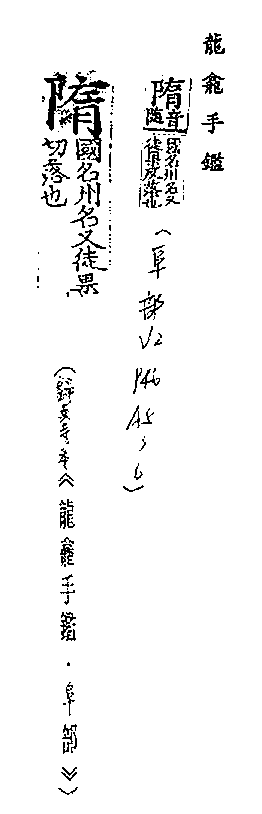 龍龕手鑑
隋音隨國名州名又徒果反落也
（阜部V2 P46 A5、6）
隋國名州名又徒果切落也
《龍龕手鑑．阜部》）